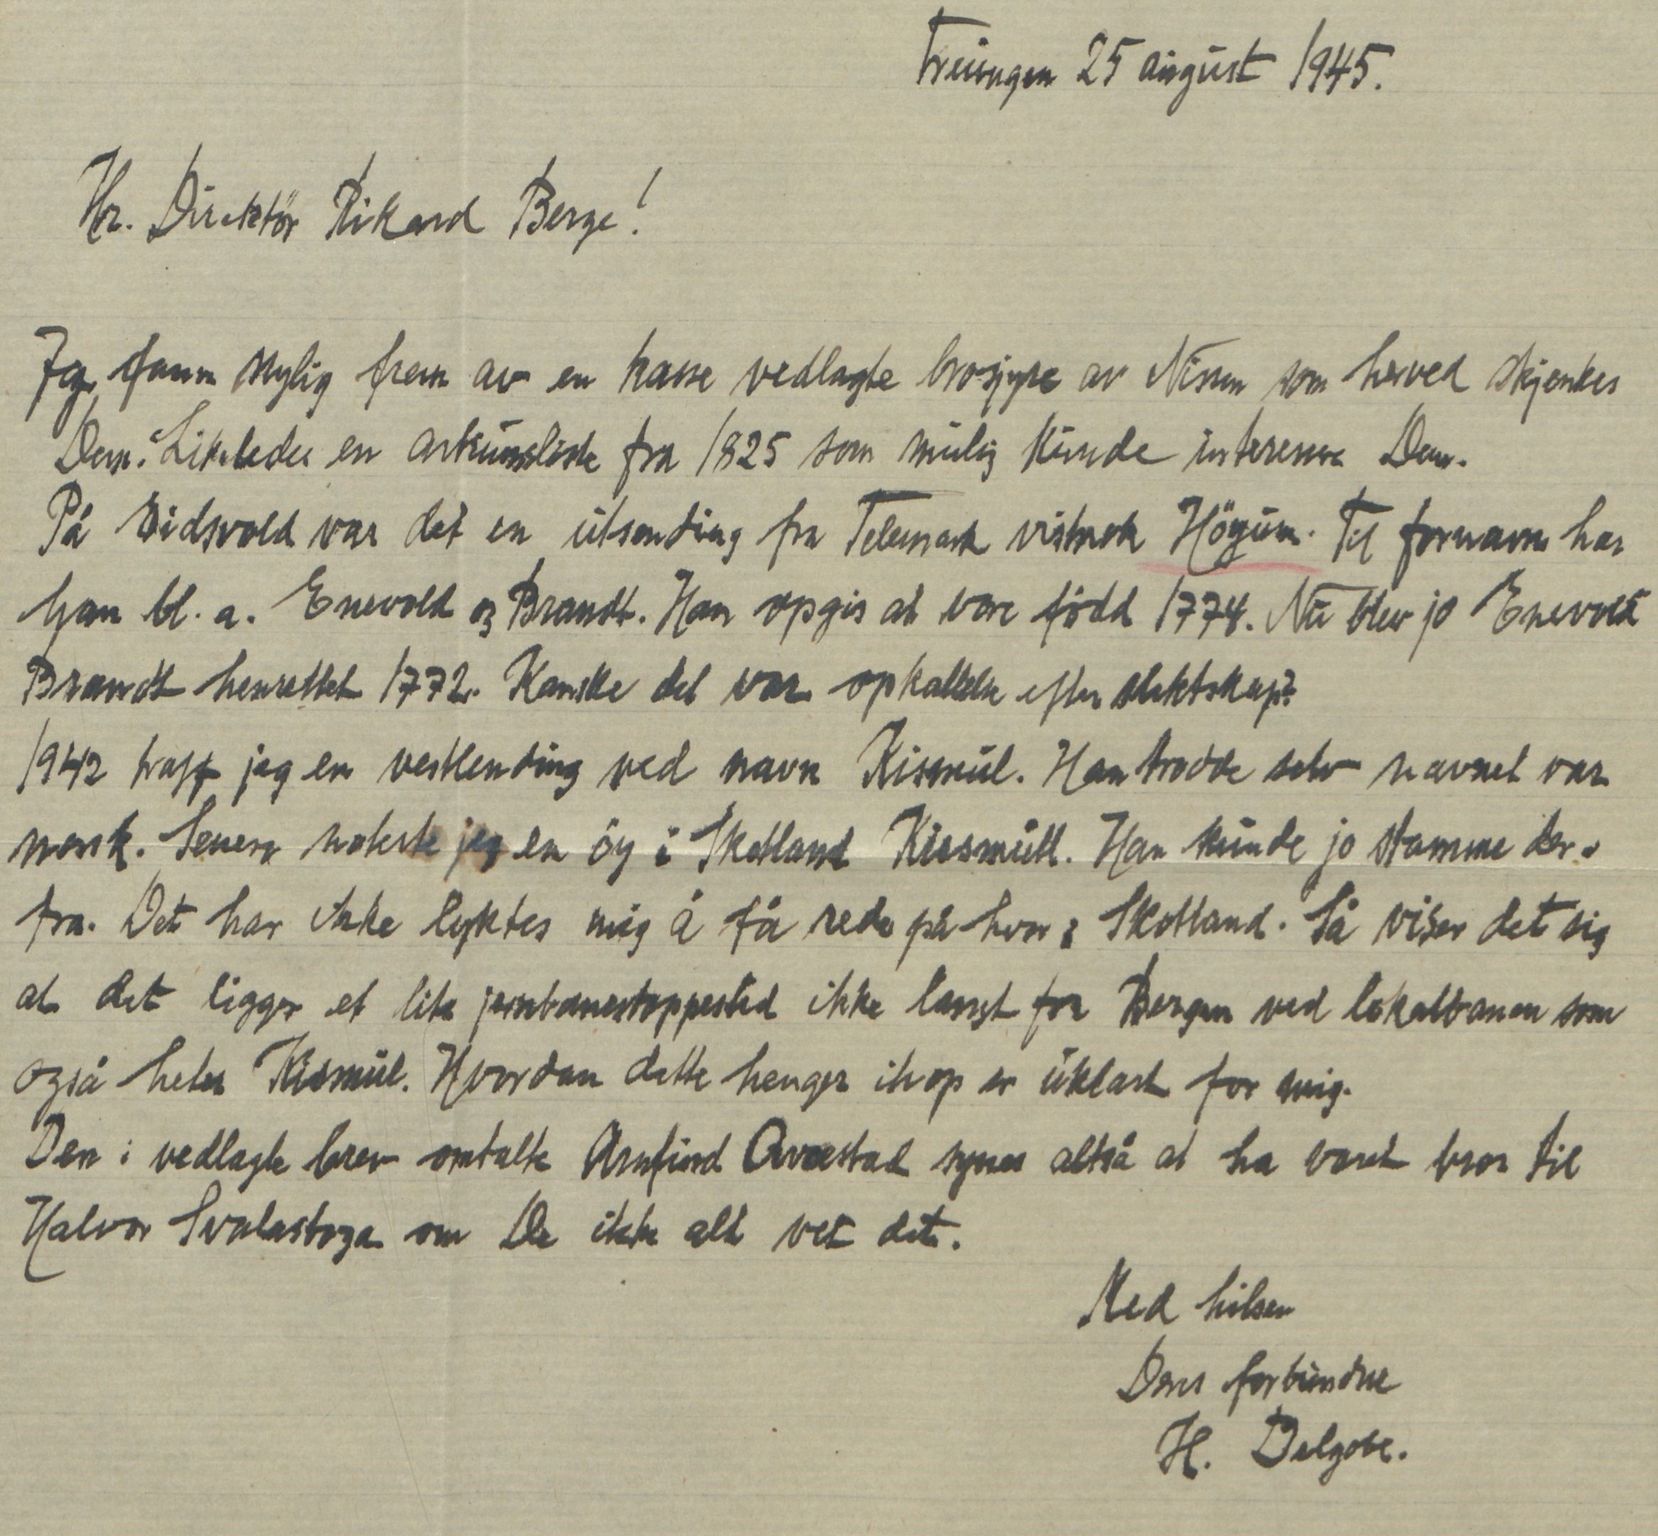 Treungen 25 august 1945.
Hr. Direktör Rikard Berge!
Jeg fann nylig frem av en kasse vedlagte brosjyre av Nissen som herved skjenkes
Dem. Likeledes en auksjonsliste fra 1825 som mulig kunde interessere Dem.
På Eidsvold var det en utsending fra Telemark vistnok Höyum. Til fornavn har
han bl. a. Enevold og Brandt. Han opgis at være född 1774. Nu blev jo Enevold
Brandt henrettet 1772. Kanske det var opkallelse efter slektskap?
1942 traff jeg en vestlending ved navn Kismul. Han trodde selv navnet var
norsk. Senere noterte jeg en öy i Skotland Kissmull. Han kunde jo stamme der-
fra. Det har ikke lyktes mig å få rede på hvor i Skotland. Så viser det sig
at det ligger et lite jernbanestoppested ikke langt fra Bergen ved lokalbanen som
også heter Kismul. Hvordan dette henger ihop er uklart for mig.
Den i vedlagte brev omtalte Arnfinnd Aarestad synes altså at ha været bror til
Halvor Svalastoga om De ikke alt vet det.
Med hilsen
Deres forbundne
H. Delgobe.